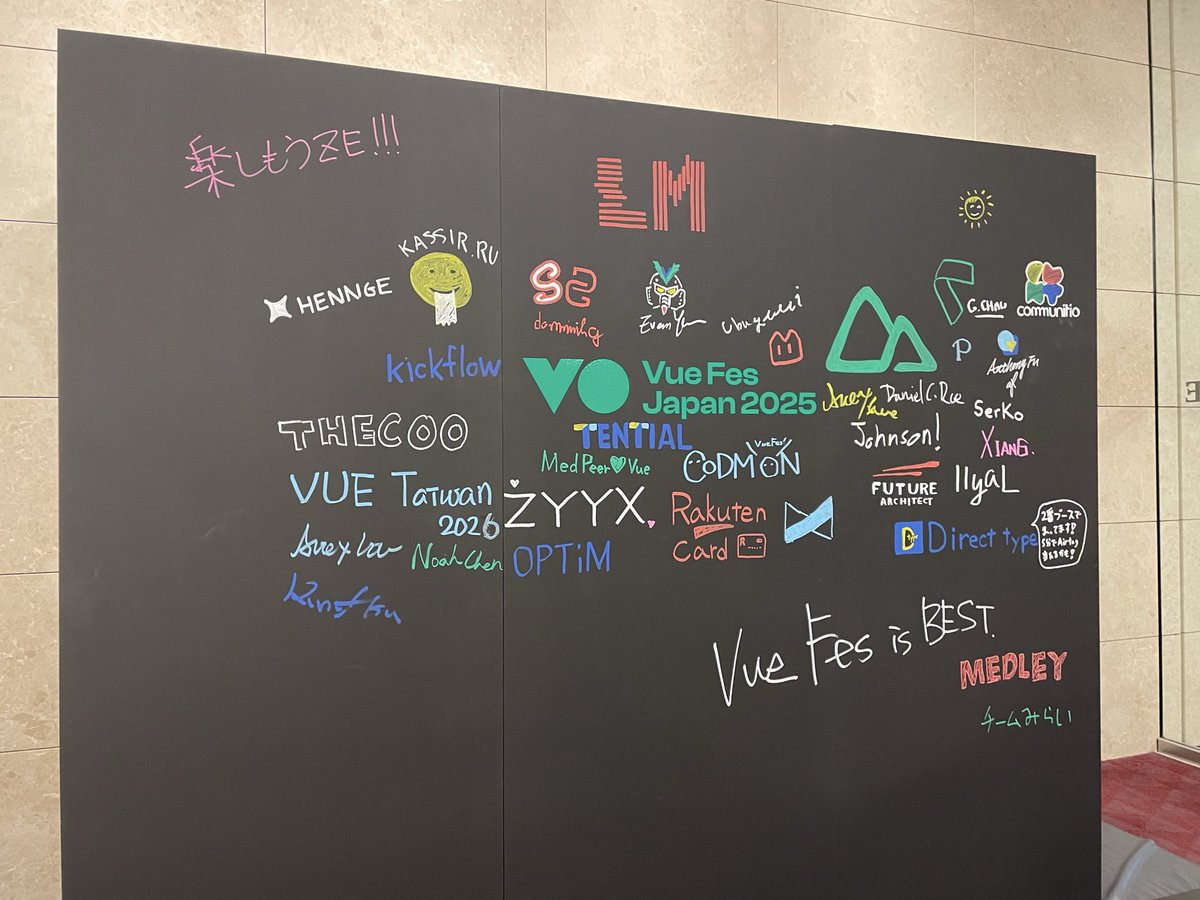 楽しもうZE!!!
LM
KASSIR.RU
HENNGE
kickflow
THECOO
VUE Taiwan
2026
Noah Chen
Evan You
Vue Fes
Japan 2025
TENTIAL
MedPeer Vue
VueFes!
CODMON
ZYYX.
OPTiM
Rakuten
Card
R
G.CHAU
communitio
P
Anthony Fu
Daniel C. Roe
SerKo
Johnson!
XIANG.
IlyaL
FUTURE
ARCHITECT
D type
Direct type
Vue Fes is BEST.
MEDLEY
チームみらい